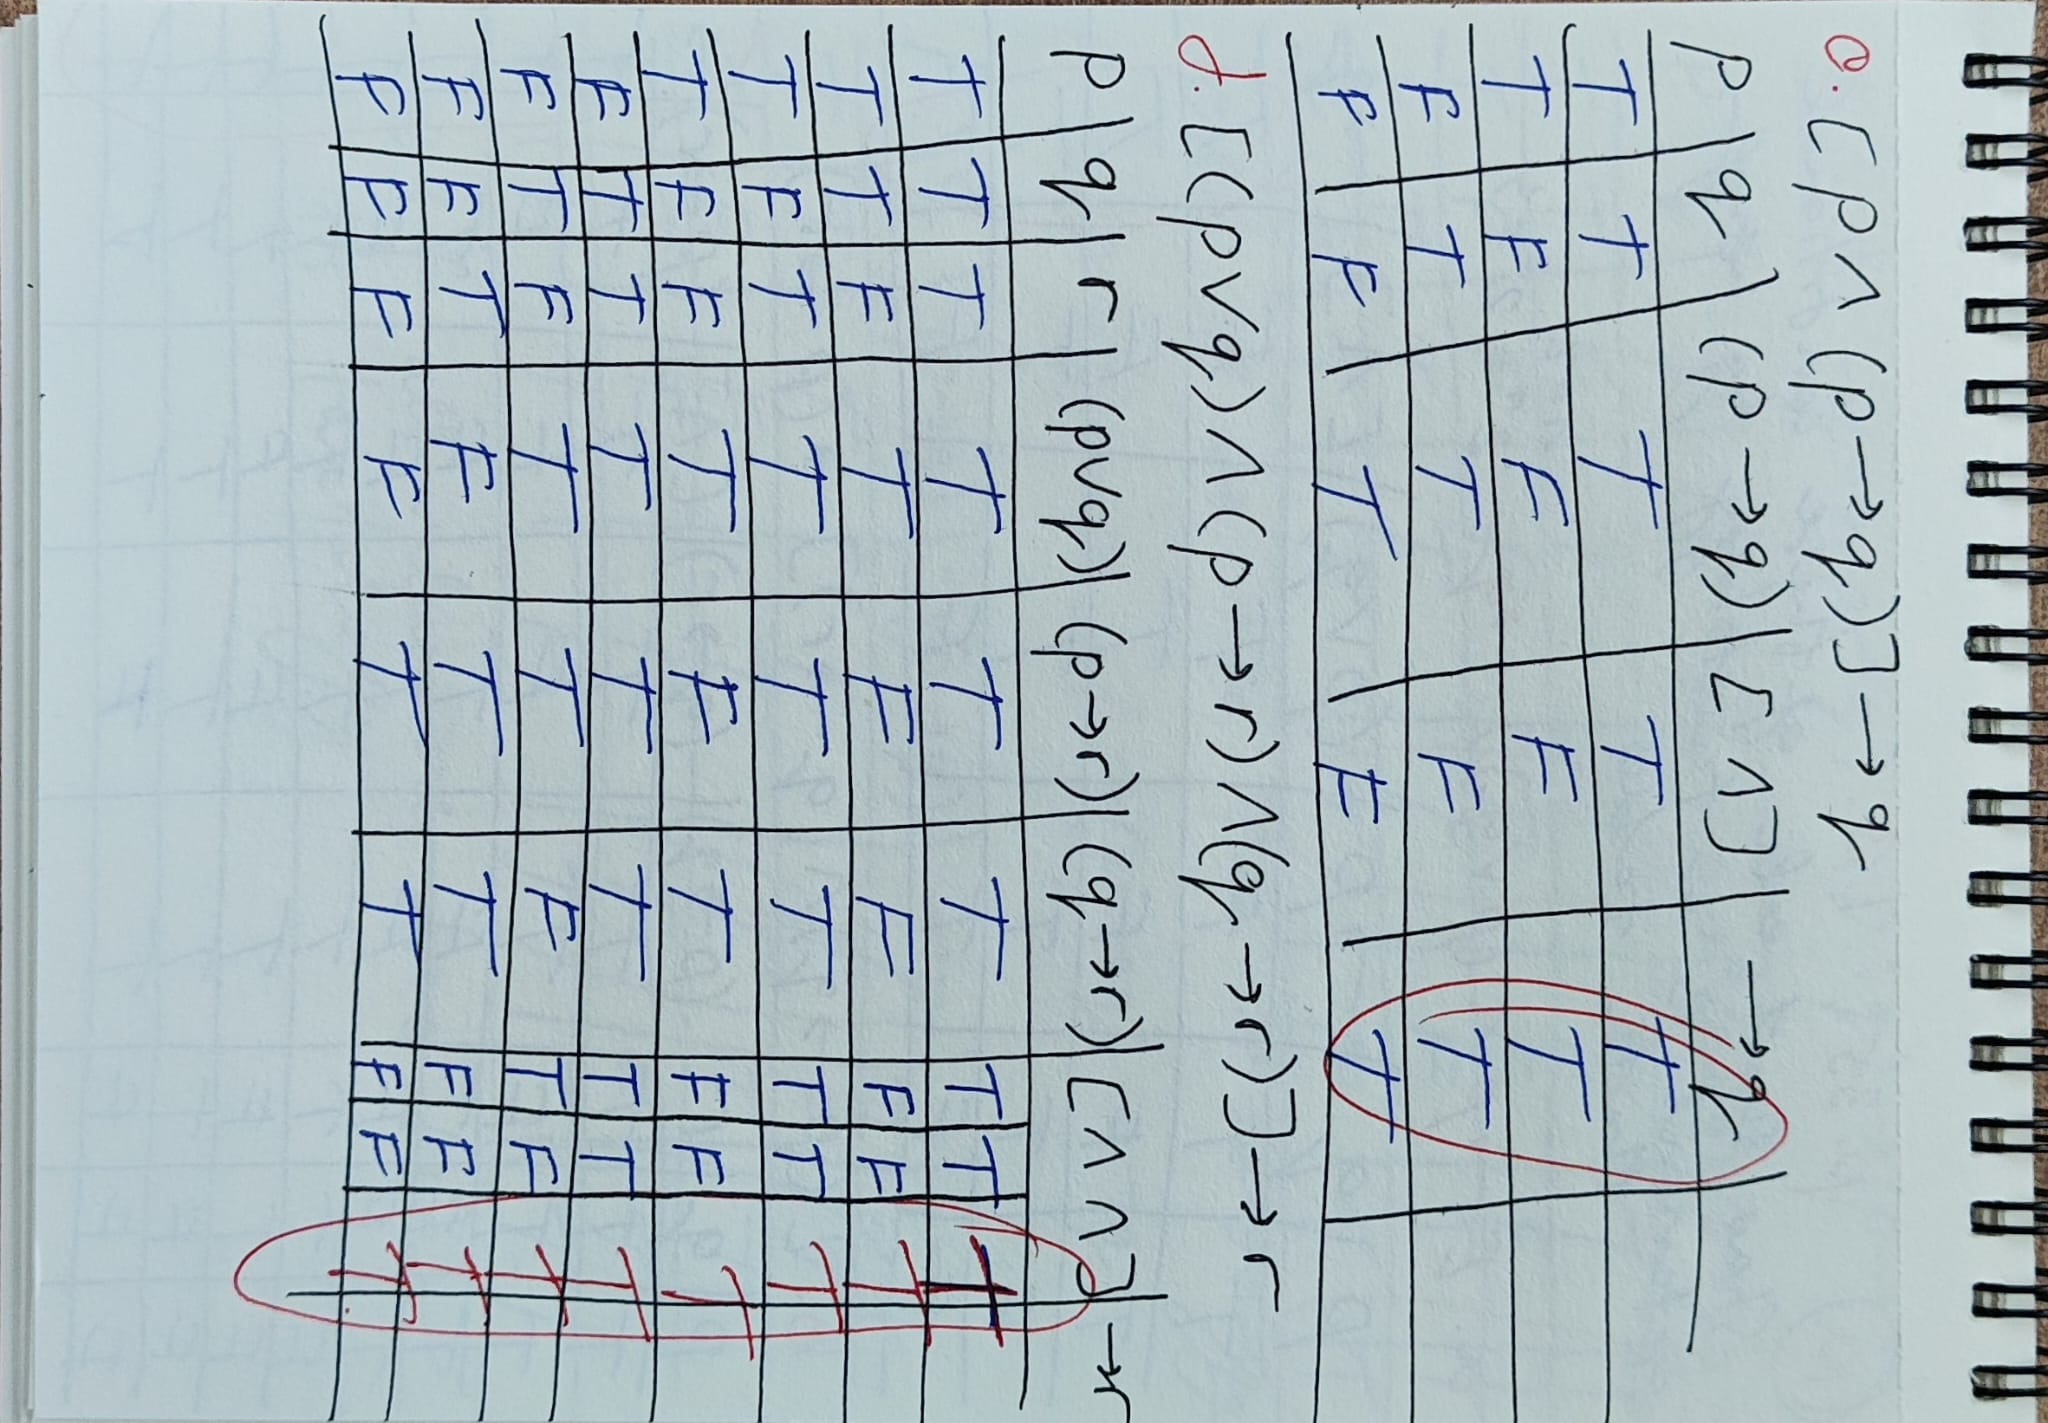 e. [p ∧ (p→q)] → q
p | q | (p→q) | [∧] | → q
T | T | T | T | T
T | F | F | F | T
F | T | T | F | T
F | F | T | F | T
f. [(p∨q) ∧ (p→r) ∧ (q→r)] → r
p | q | r | (p∨q) | (p→r) | (q→r) | [∧ ∧] | → r
T | T | T | T | T | T | T | T | T
T | T | F | T | F | F | F | F | T
T | F | T | T | T | T | T | T | T
T | F | F | T | F | T | F | F | T
F | T | T | T | T | T | T | T | T
F | T | F | T | T | F | T | F | T
F | F | T | F | T | T | F | F | T
F | F | F | F | T | T | F | F | T